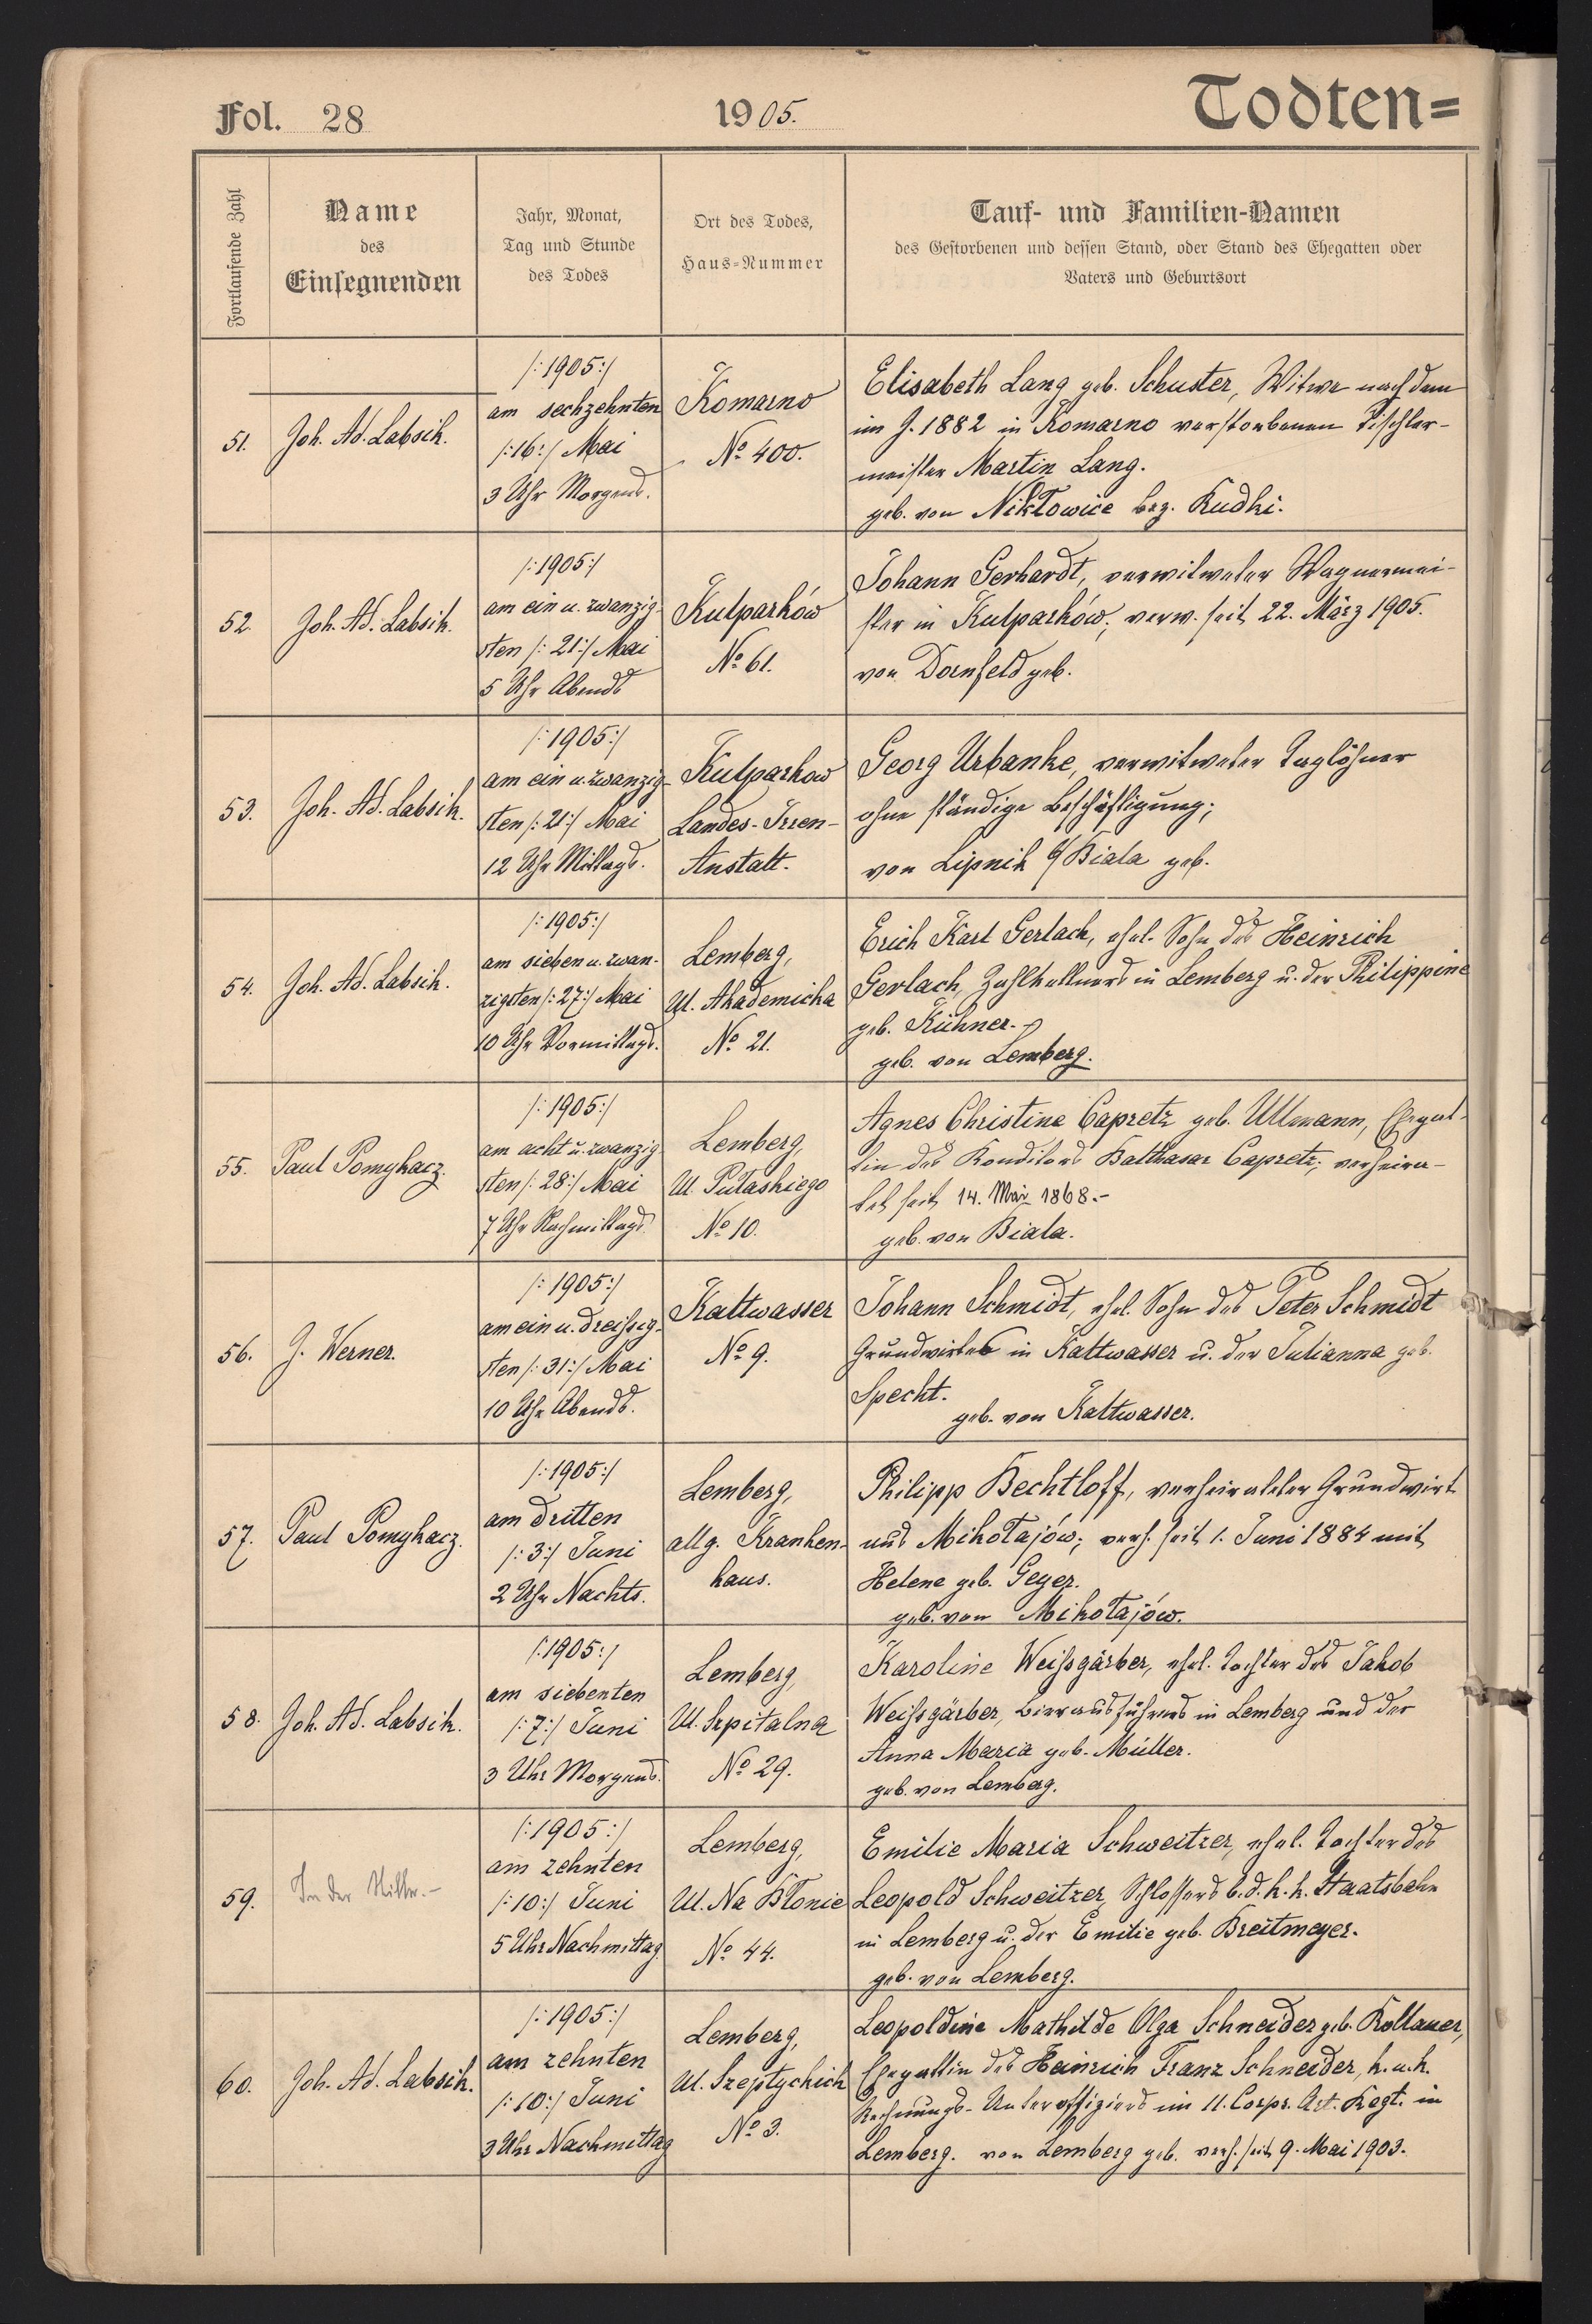 Fol. 28
1905.
Todten=
Fortlaufende Zahl
Name
des
Einsegnenden
Jahr, Monat,
Tag und Stunde
des Todes
Ort des Todes,
Haus-Nummer
Tauf- und Familien-Namen
des Gestorbenen und dessen Stand, oder Stand des Ehegatten oder
Vaters und Geburtsort
51.
Joh. Ad. Labsik.
/:1905:/
am sechzehnten
/:16:/ Mai
3 Uhr Morgens.
Komarno
No 400.
Elisabeth Lang geb. Schuster, Witwe nach dem
im J. 1882 in Komarno verstorbenen Tischler-
meister Martin Lang.
geb. von Nikłowice bez. Rudki.
52.
Joh. Ad. Labsik.
/:1905:/
am ein u. zwanzig-
sten /:21:/ Mai
5 Uhr Abends
Kulparków
No 61.
Johann Gerhardt, verwitweter Wagnermei-
ster in Kulparków; verw. seit 22. März 1905.
von Dornfeld geb.
53.
Joh. Ad. Labsik.
/:1905:/
am ein u. zwanzig-
sten /:21:/ Mai
12 Uhr Mittags.
Kulparkow
Landes-Irren-
Anstalt.
Georg Urbanke, verwitweter Taglöhner
ohne ständige Beschäftigung;
von Lipnik b/Biala geb.
54.
Joh. Ad. Labsik.
/:1905:/
am sieben u. zwan-
zigsten /:27:/ Mai
10 Uhr Vormittags.
Lemberg,
Ul. Akademicka
No 21.
Erich Karl Gerlach, ehel. Sohn des Heinrich
Gerlach, Zahlkellners in Lemberg u. der Philippine
geb. Kühner.
geb. von Lemberg.
55.
Paul Pomykacz.
/:1905:/
am acht u. zwanzig-
sten /:28:/ Mai
7 Uhr Nachmittags
Lemberg,
Ul. Pułaskiego
No 10.
Agnes Christine Capretz geb. Ullmann, Ehegat-
tin des Konditors Balthasar Capretz; verheira-
tet seit 14. Mai 1868.-
geb. von Biala.
56.
J. Werner.
/:1905:/
am ein u. dreissig-
sten /:31:/ Mai
10 Uhr Abends.
Kaltwasser
No 9.
Johann Schmidt, ehel. Sohn des Peter Schmidt
Grundwirtes in Kaltwasser u. der Julianna geb.
Specht.
geb. von Kaltwasser.
57.
Paul Pomykacz.
/:1905:/
am dritten
/:3:/ Juni
2 Uhr Nachts.
Lemberg,
allg. Kranken-
haus.
Philipp Bechtloff, verheirateter Grundwirt
aus Mikołajów; verh. seit 1. Juni 1884 mit
Helene geb. Geyer.
geb. von Mikołajów.
58.
Joh. Ad. Labsik.
/:1905:/
am siebenten
/:7:/ Juni
3 Uhr Morgens.
Lemberg,
Ul. Szpitalna
No 29.
Karoline Weissgärber, ehel. Tochter des Jakob
Weissgärber, Bierausführers in Lemberg und der
Anna Maria geb. Müller.
geb. von Lemberg.
59.
In der
/:1905:/
am zehnten
/:10:/ Juni
5 Uhr Nachmittag
Lemberg,
Ul. Na Błonie
No 44.
Emilie Maria Schweitzer, ehel. Tochter des
Leopold Schweitzer, Schlossers b. d. k. k. Staatsbahn
in Lemberg u. der Emilie geb. Breitmeyer.
geb. von Lemberg.
60.
Joh. Ad. Labsik.
/:1905:/
am zehnten
/:10:/ Juni
3 Uhr Nachmittag
Lemberg,
Ul. Szeptyckich
No 3.
Leopoldine Mathilde Olga Schneider geb. Kollauer,
Ehegattin des Heinrich Franz Schneider, k. u. k.
Rechnungs-Unteroffiziers im 11. Corps. Art. Regt. in
Lemberg. von Lemberg geb. verh. seit 9. Mai 1903.